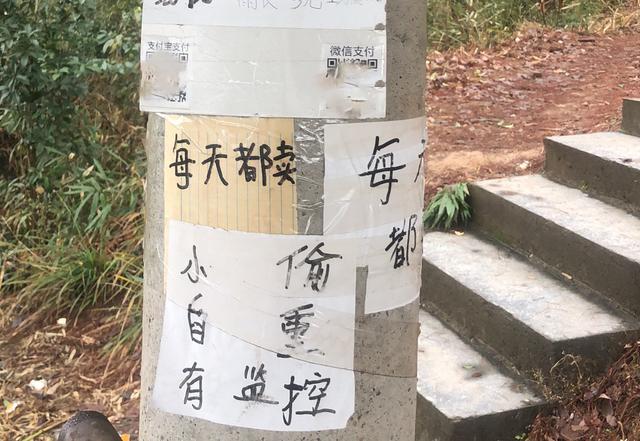 支付宝支付
微信支付
每天都卖
每天
都
小偷
自重
有监控